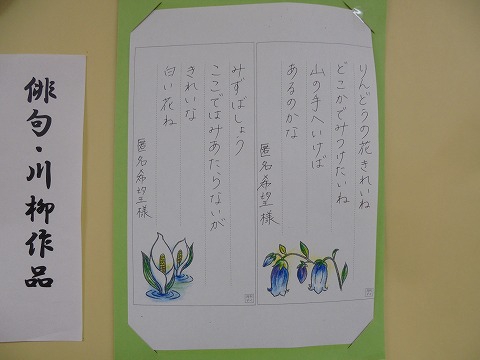 りんどうの花きれいね
どこかでみつけたいね
山の手へいけば
あるのかな
匿名希望様
みずばしょう
ここではみあたらないが
きれいな
白い花ね
匿名希望様
俳句・川柳作品